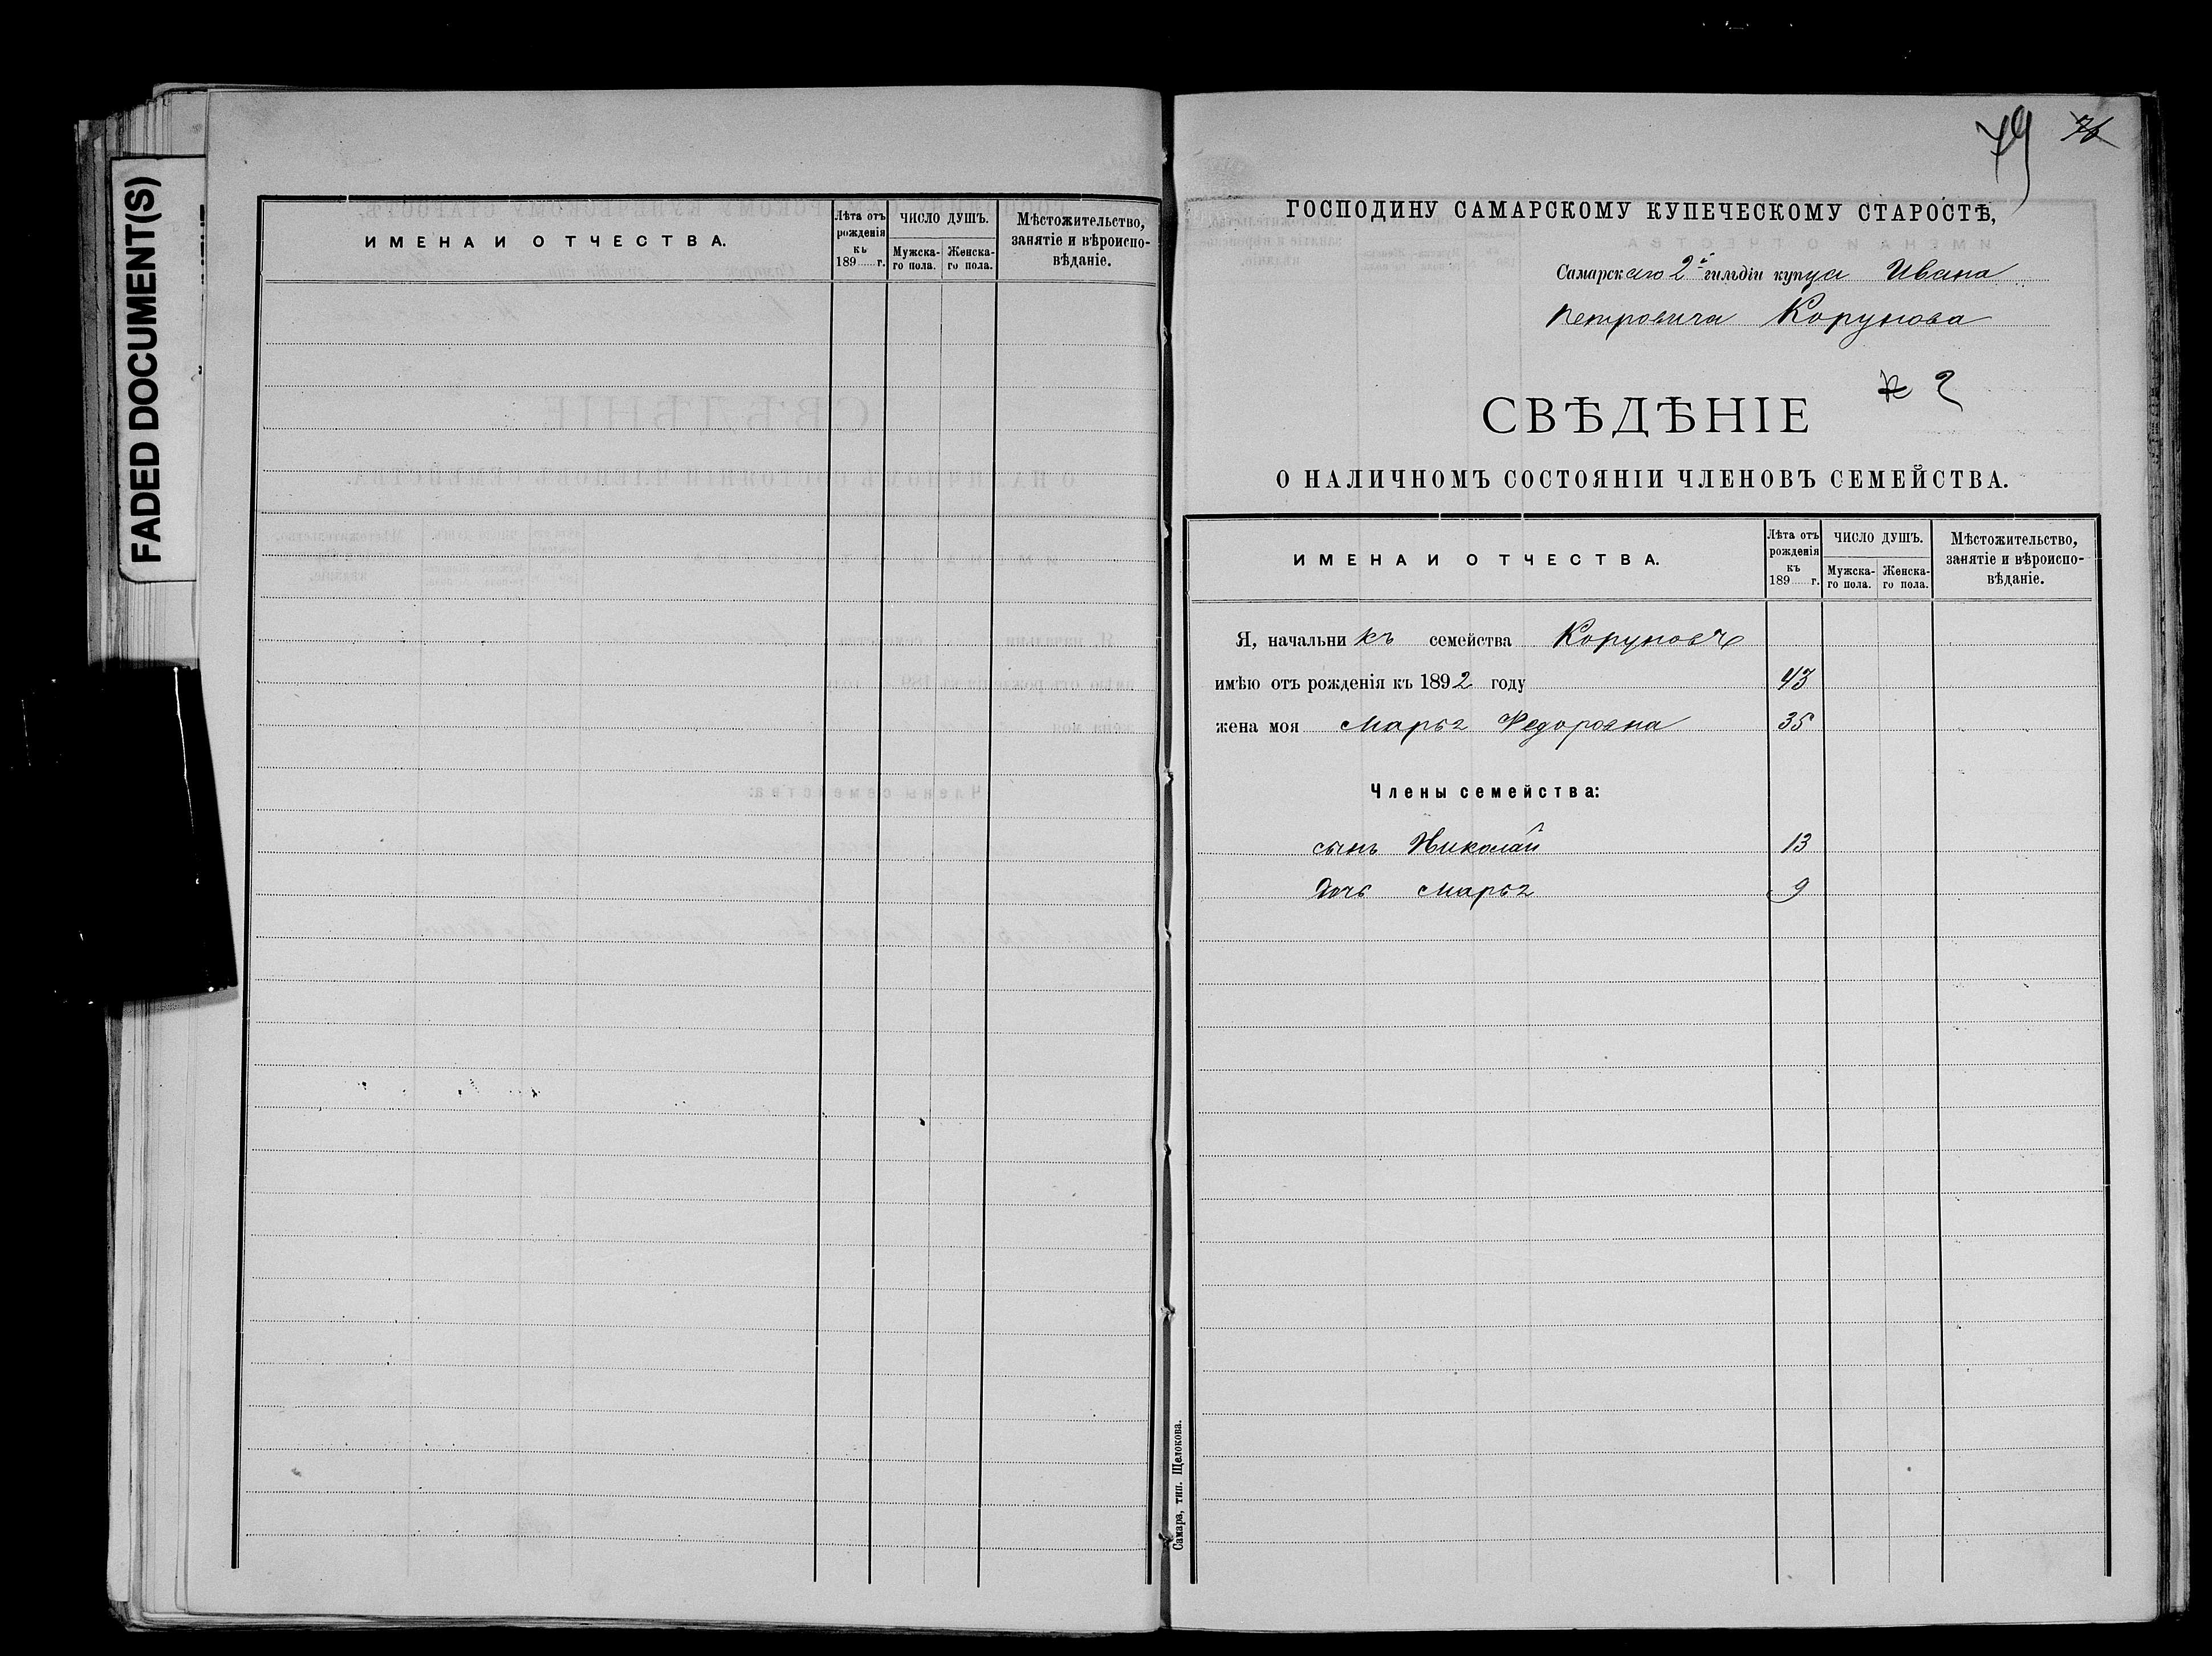 FADED DOCUMENT(S)
ИМЕНА И ОТЧЕСТВА.
Лѣта отъ рожденія къ 189 г.
ЧИСЛО ДУШЪ.
Мужска-го пола.
Женска-го пола.
Мѣстожительство, занятіе и вѣроиспо-вѣданіе.
79 76
ГОСПОДИНУ САМАРСКОМУ КУПЕЧЕСКОМУ СТАРОСТѢ,
Самарскаго 2й гильдіи купца Ивана
Петровича Корунова
СВѢДѢНІЕ
2
О НАЛИЧНОМЪ СОСТОЯНІИ ЧЛЕНОВЪ СЕМЕЙСТВА.
ИМЕНА И ОТЧЕСТВА.
Лѣта отъ рожденія къ 189 г.
ЧИСЛО ДУШЪ.
Мужска-го пола.
Женска-го пола.
Мѣстожительство, занятіе и вѣроиспо-вѣданіе.
Я, начальникъ семейства Коруновъ
имѣю отъ рожденія къ 1892 году 43
жена моя Марья Федоровна 35
Члены семейства:
сынъ Николай 13
Дочь Марья 9
Самара, тип. Щелокова.